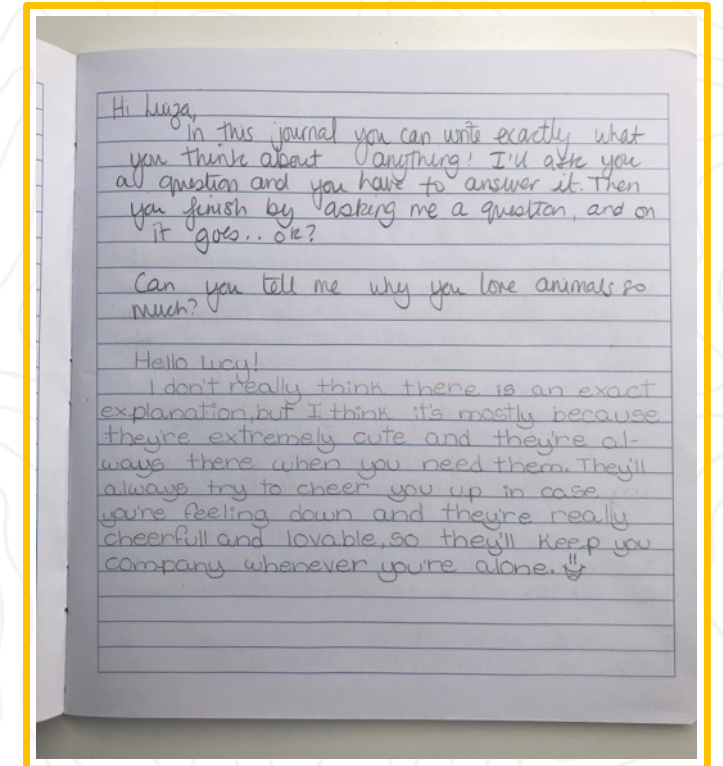 Hi Luiza,
In this journal you can write exactly what
you think about anything! I'll ask you
a question and you have to answer it. Then
you finish by asking me a question, and on
it goes.. ok?
Can you tell me why you love animals so
much?
Hello Lucy!
I don't really think there is an exact
explanation, but I think it's mostly because
they're extremely cute and they're al-
ways there when you need them. They'll
always try to cheer you up in case
you're feeling down and they're really
cheerfull and lovable, so they'll keep you
company whenever you're alone.